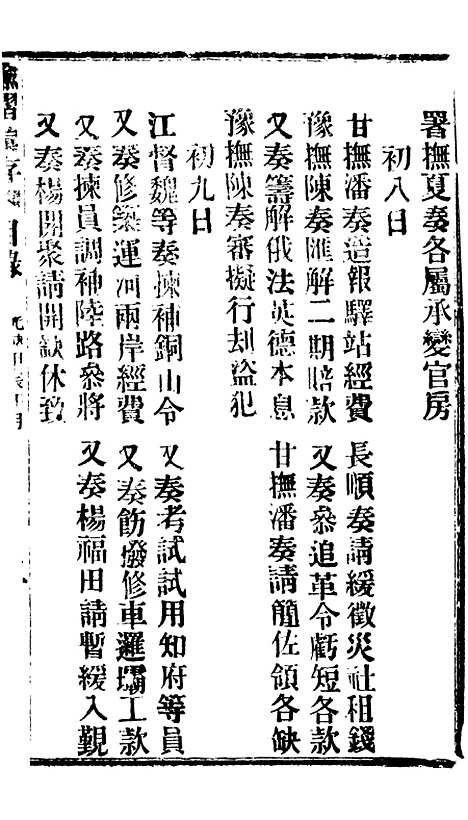 署撫夏奏各屬承變官房
初八日
甘撫潘奏造報驛站經費　長順奏請緩徵災社租錢
豫撫陳奏匯解二期賠款　又奏叅追革令虧短各款
又奏籌解俄法英德本息　甘撫潘奏請簡佐領各缺
豫撫陳奏審擬行刦盜犯
初九日
江督魏等奏揀補銅山令　又奏考試試用知府等員
又奏修築運河兩岸經費　又奏飭撥修車邏壩工款
又奏揀員調補陸路叅將　又奏楊福田請暫緩入覲
又奏楊開聚請開缺休致
目錄